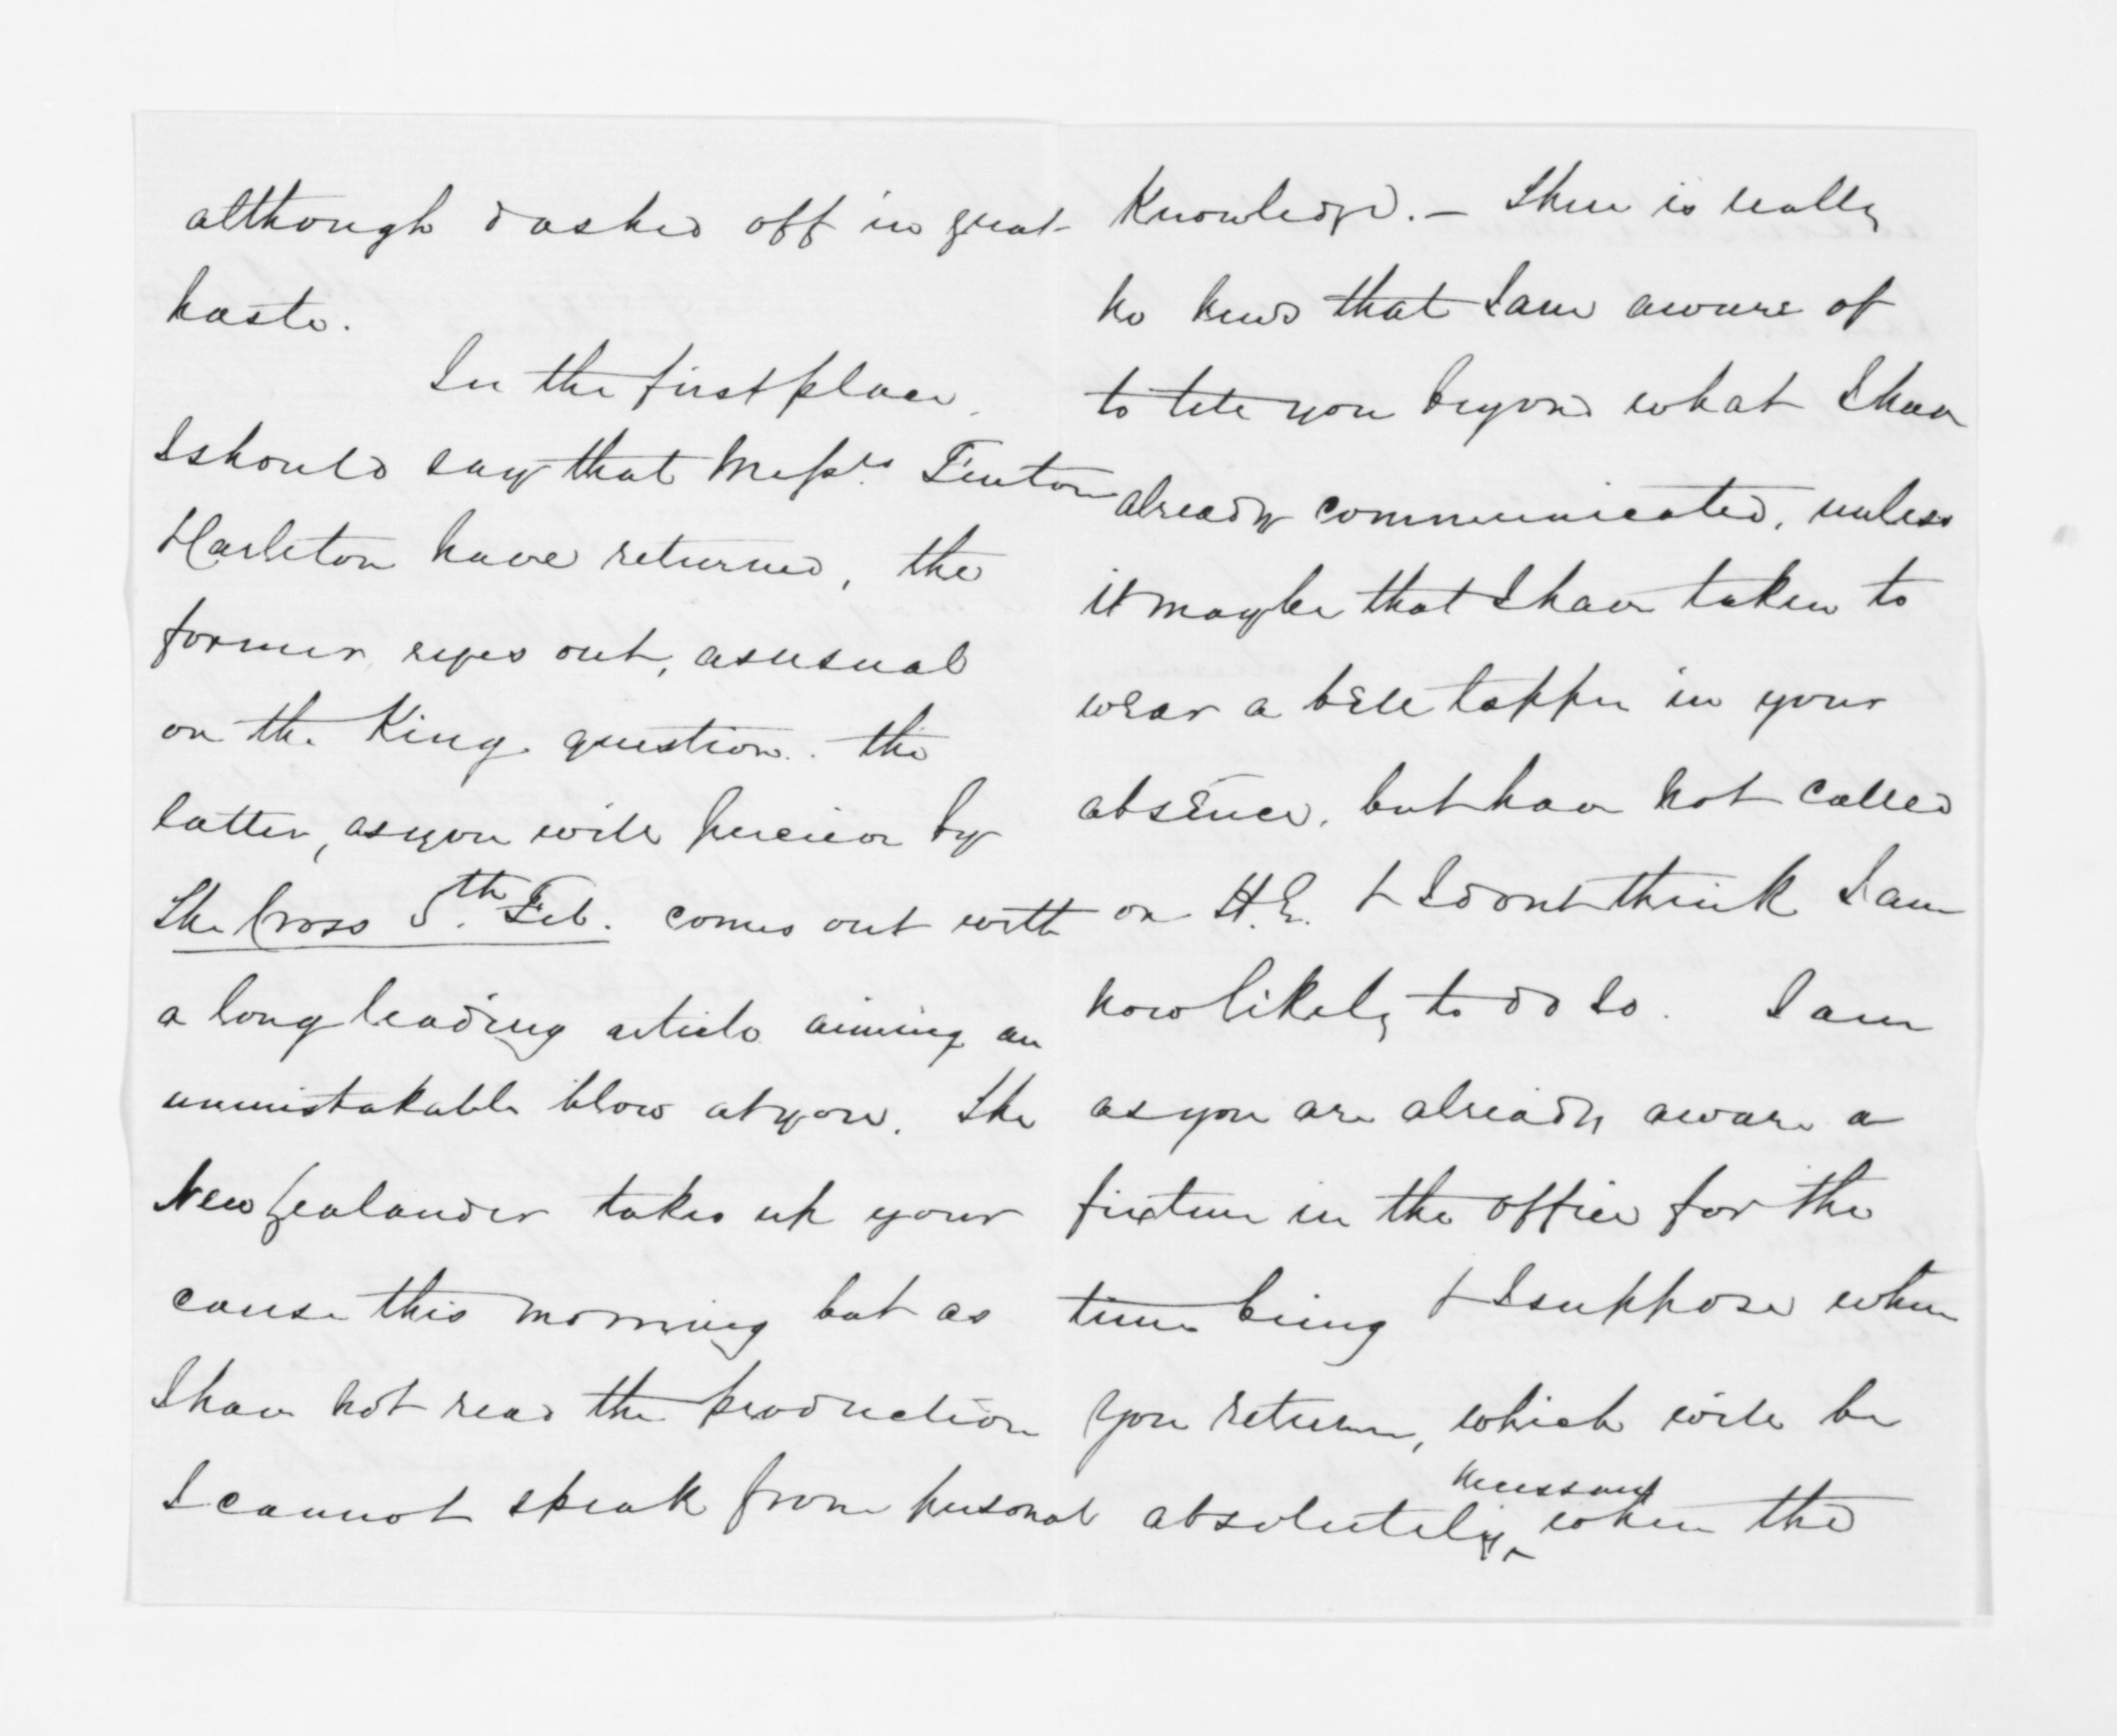 although dashed off in great
haste.
In the first place,
I should say that Messrs. Fenton
& Carleton have returned, the
former, out, as usual
on the King question. the
latter, as you will perceive by
The Cross 5.th Feb. comes out with
a long leading article aiming an
unmistakable blow at you. The
New Zealander takes up your
cause this morning but as
I have not read the production
I cannot speak from personal
knowledge. — There is really
no news that I am aware of
to tell you beyond what I have
already communicated, unless
it may be that I have taken to
wear a bell topper in your
absence, but have not called
on H.E. & I dont think I am
now likely to do so. I am
as you are already aware a
fixture in the office for the
time being & I suppose when
you return, which will be
absolutely necessary when the